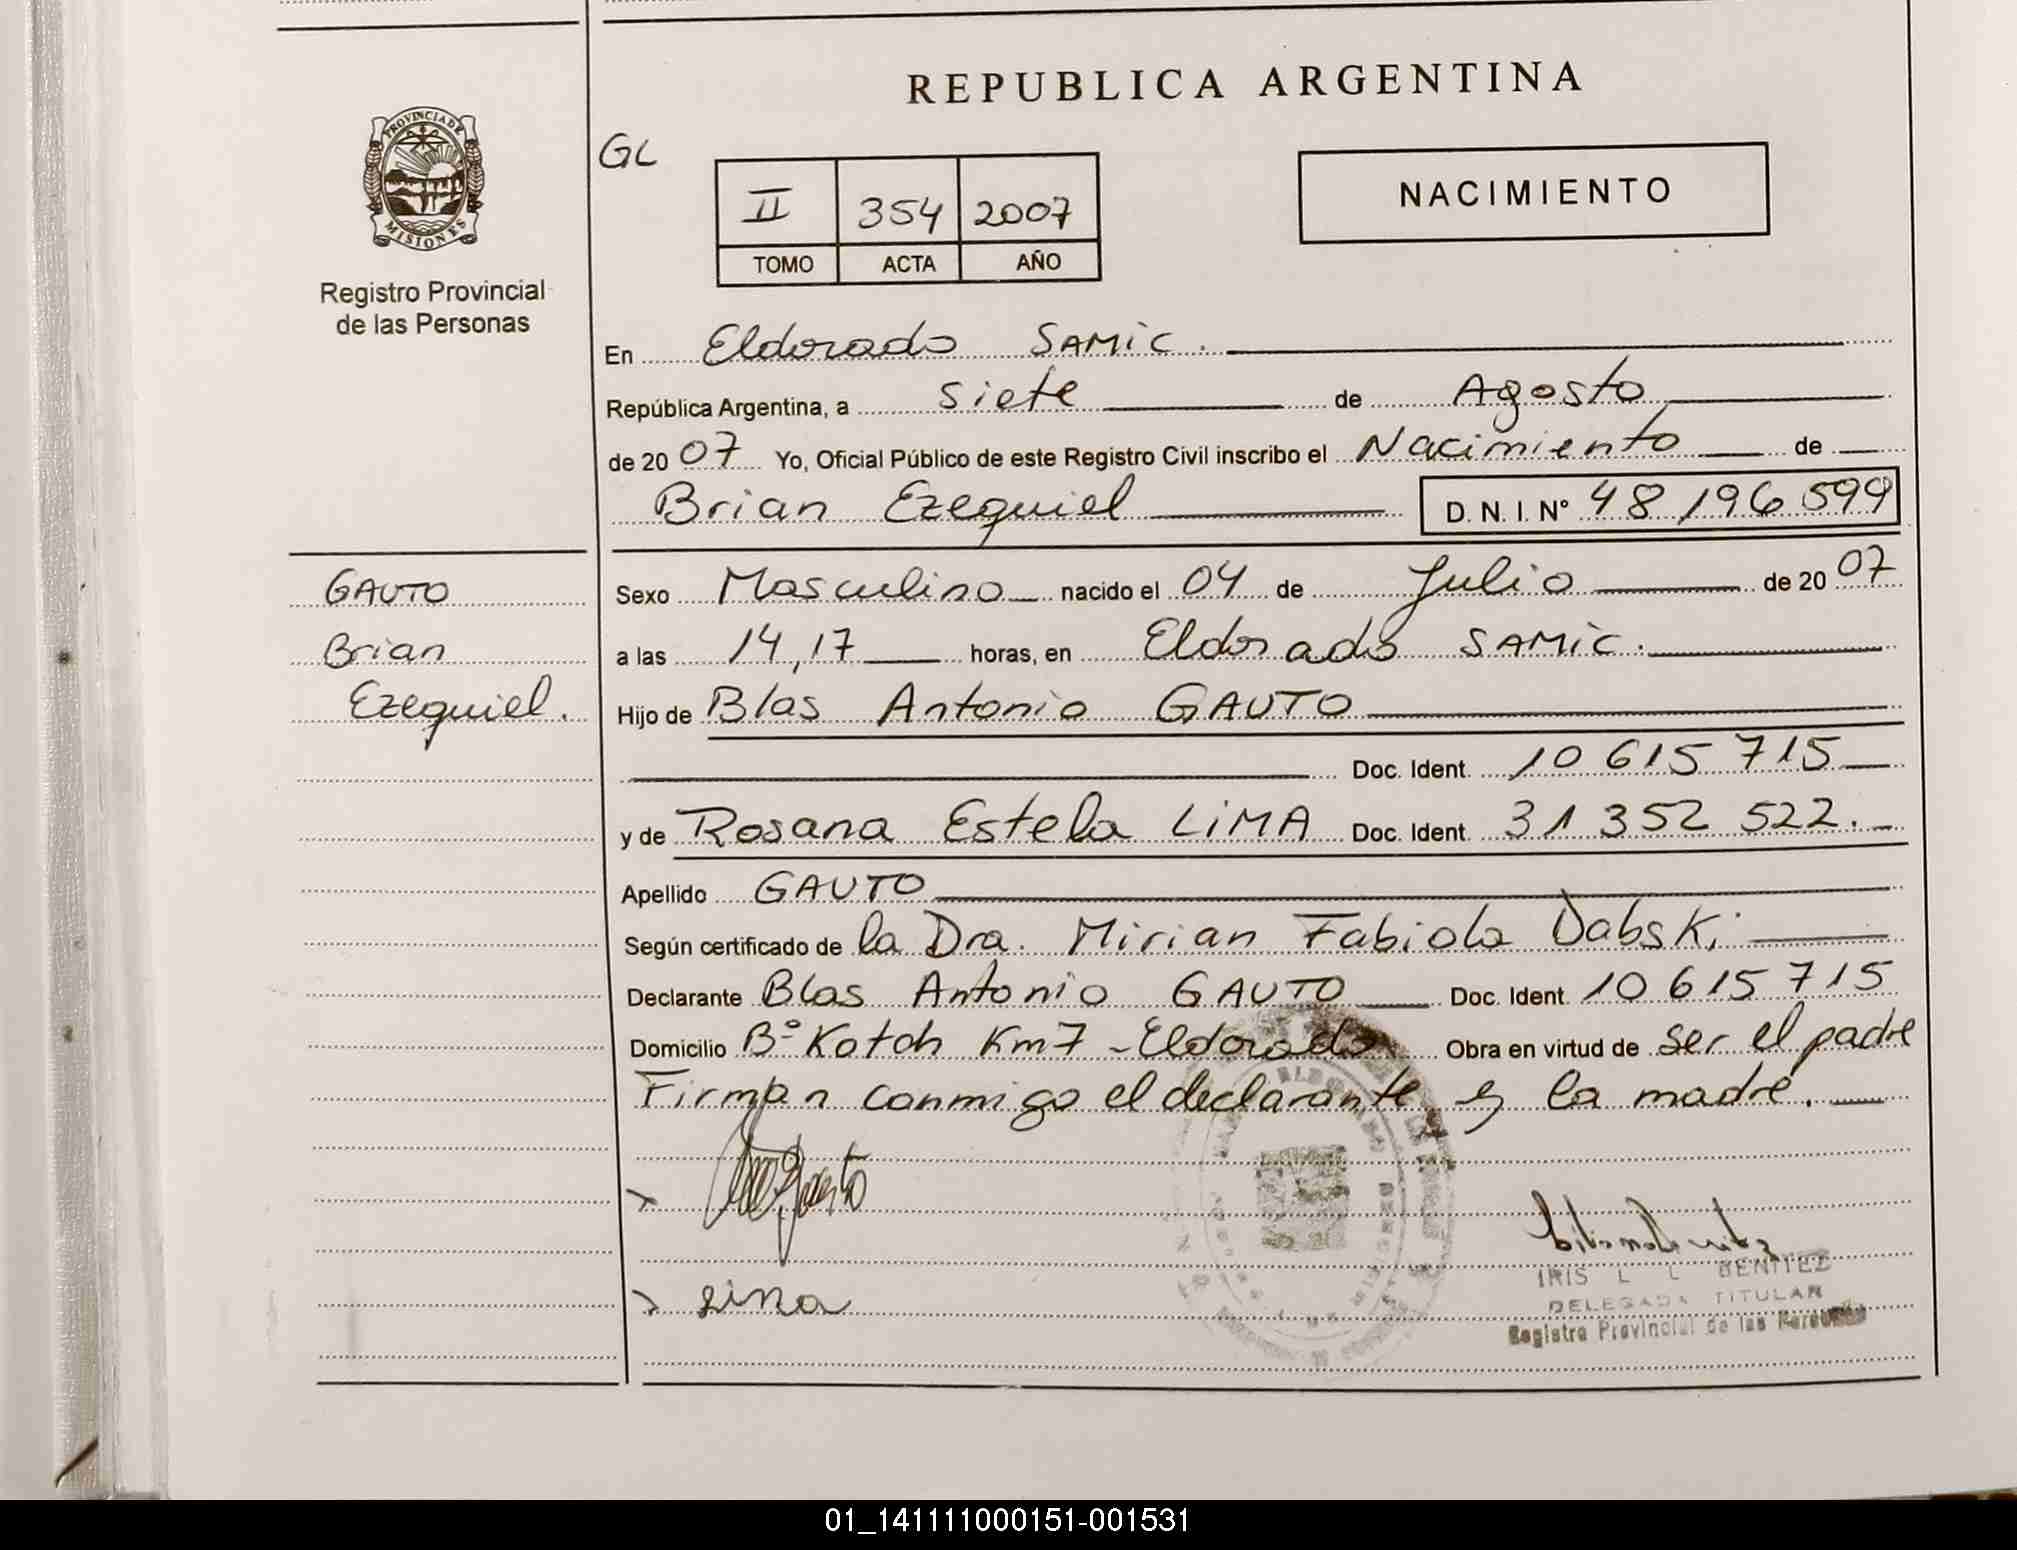 REPUBLICA ARGENTINA
PROVINCIA DE
MISIONES
Registro Provincial
de las Personas
GL
II 354 2007
TOMO ACTA AÑO
NACIMIENTO
En Eldorado SAMIC.
República Argentina, a siete de Agosto
de 2007 Yo, Oficial Público de este Registro Civil inscribo el Nacimiento de
Brian Ezequiel D. N. I. N° 48 196 599
GAUTO
Brian
Ezequiel.
Sexo Masculino nacido el 04 de Julio de 2007
a las 14,17 horas, en Eldorado SAMIC.
Hijo de Blas Antonio GAUTO
Doc. Ident. 10 615 715
y de Rosana Estela LIMA Doc. Ident. 31 352 522.
Apellido GAUTO
Según certificado de la Dra. Mirian Fabiola Dabski
Declarante Blas Antonio GAUTO Doc. Ident. 10 615 715
Domicilio Bº Kotch Km7 - Eldorado Obra en virtud de ser el padre
Firman conmigo el declarante y la madre.
Lima
IRIS L L BENITEZ
DELEGADA TITULAR
Registro Provincial de las Personas
01_141111000151-001531